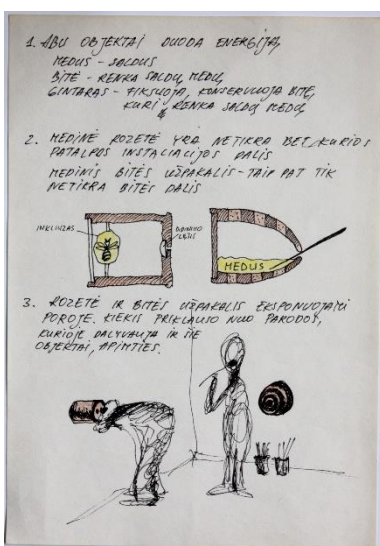 1. ABU OBJEKTAI DUODA ENERGIJĄ,
MEDUS - SALDUS
BITĖ - RENKA SALDŲ MEDŲ
GINTARAS - FIKSUOJA, KONSERVUOJA BITĘ,
KURI RENKA SALDŲ MEDŲ
2. MEDINĖ ROZETĖ YRA NETIKRA BET KURIOS
PATALPOS INSTALIACIJOS DALIS
MEDINIS BITĖS UŽPAKALIS - TAIP PAT TIK
NETIKRA BITĖS DALIS
INKLIUZAS
LĘŠIS
MEDUS
3. ROZETĖ IR BITĖS UŽPAKALIS EKSPONUOJAMI
POROJE. KIEKIS PRIKLAUSO NUO PARODOS,
KURIOJE DALYVAUJA IR ŠIE
OBJEKTAI, APIMTIES.